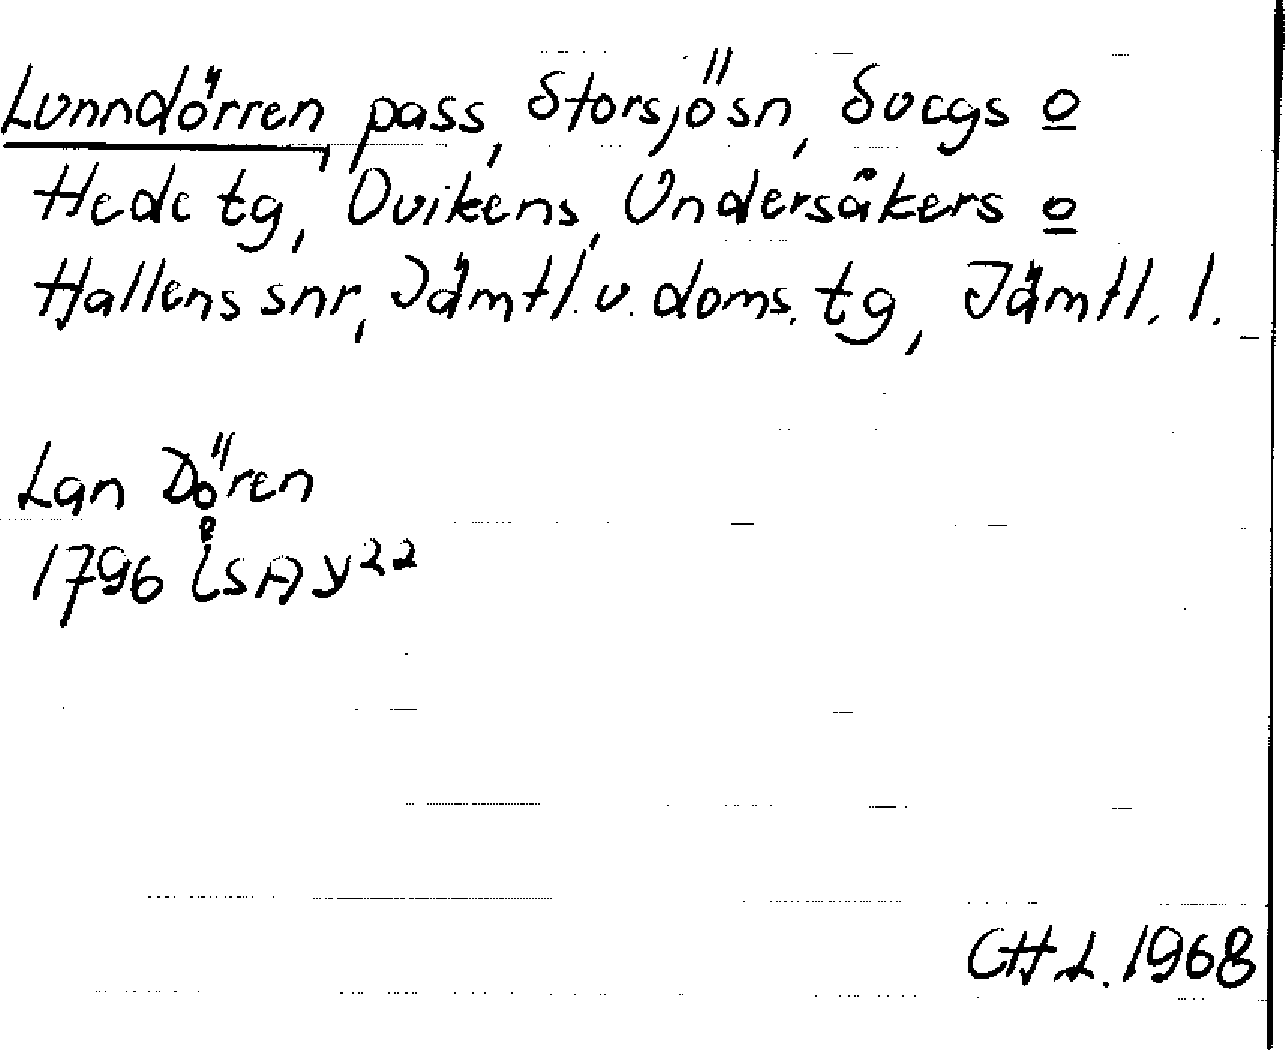 Lunndörren, pass, Storsjö sn, Svegs o
Hede tg, Ovikens, Undersåkers o
Hallens snr, Jämtl. v. doms. tg, Jämtl. l.
Lan Dören
1796 LSA Y22
CHL. 1968